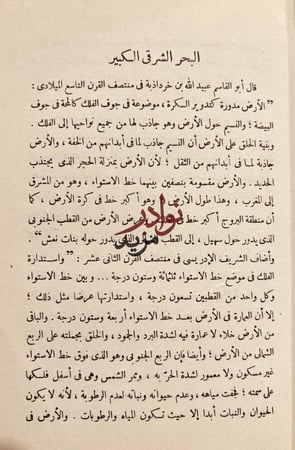 البحر الشرقى الكبير
قال أبو القاسم عبيد الله بن خرداذبة فى منتصف القرن التاسع الميلادى :
" الأرض مدورة كتدوير السكرة ، موضوعة فى جوف الفلك كالمحة فى جوف
البيضة ؛ والنسيم حول الأرض وهو جاذب لها من جميع نواحيها إلى الفلك .
وبنية الخلق على الأرض أن النسيم جاذب لما فى أبدانهم من الخفة ، والأرض
جاذبة لما فى أبدانهم من الثقل ؛ لأن الأرض بمنزلة الحجر الذى يجتذب
الحديد . والأرض مقسومة بنصفين بينهما خط الاستواء ، وهو من المشرق
إلى المغرب ، وهذا طول الأرض ، وهو أكبر خط فى كرة الأرض ، كما
أن منطقة البروج أكبر خط الأرض من القطب الجنوبى
الذى يدور حول سهيل ، إلى القطب الذى يدور حوله بنات نعش " .
وأضاف الشريف الإدريسى فى منتصف القرن الثانى عشر : " واستدارة
الفلك فى موضع خط الاستواء ثلثمائة وستون درجة ... وبين خط الاستواء
وكل واحد من القطبين تسعون درجة ، واستدارتها عرضا مثل ذلك ؛
إلا أن العمارة فى الأرض بعد خط الاستواء أربعة وستون درجة . والباقى
من الأرض خلاء لا عمارة فيه لشدة البرد والجمود ، والخلق بجملته على الربع
الشمالى من الأرض ؛ وأيضا فإن الربع الجنوبى وهو الذى فوق خط الاستواء
غير مسكون ولا معمور لشدة الحرّ به ، وممر الشمس وهى فى أسفل فلكها
على سمته ؛ بجفت مياهه ، وعدم حيوانه ونباته لعدم الرطوبة ، لأنه لا يكون
الحيوان والنبات أبدا إلا حيث تسكون المياه والرطوبات . والأرض فى
نوادر
مزيد